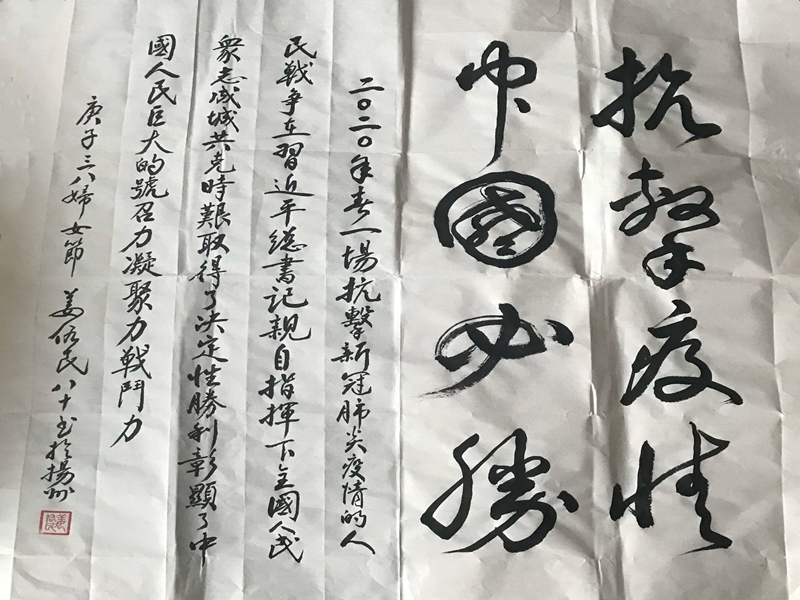 抗擊疫情
中國必勝
二〇二〇年春一場抗擊新冠肺炎疫情的人
民戰争在習近平總書記親自指揮下全國人民
衆志成城共克時艱取得了决定性勝利彰顯了中
國人民巨大的號召力凝聚力戰鬥力
庚子三八婦女節 姜 民八十書於揚州